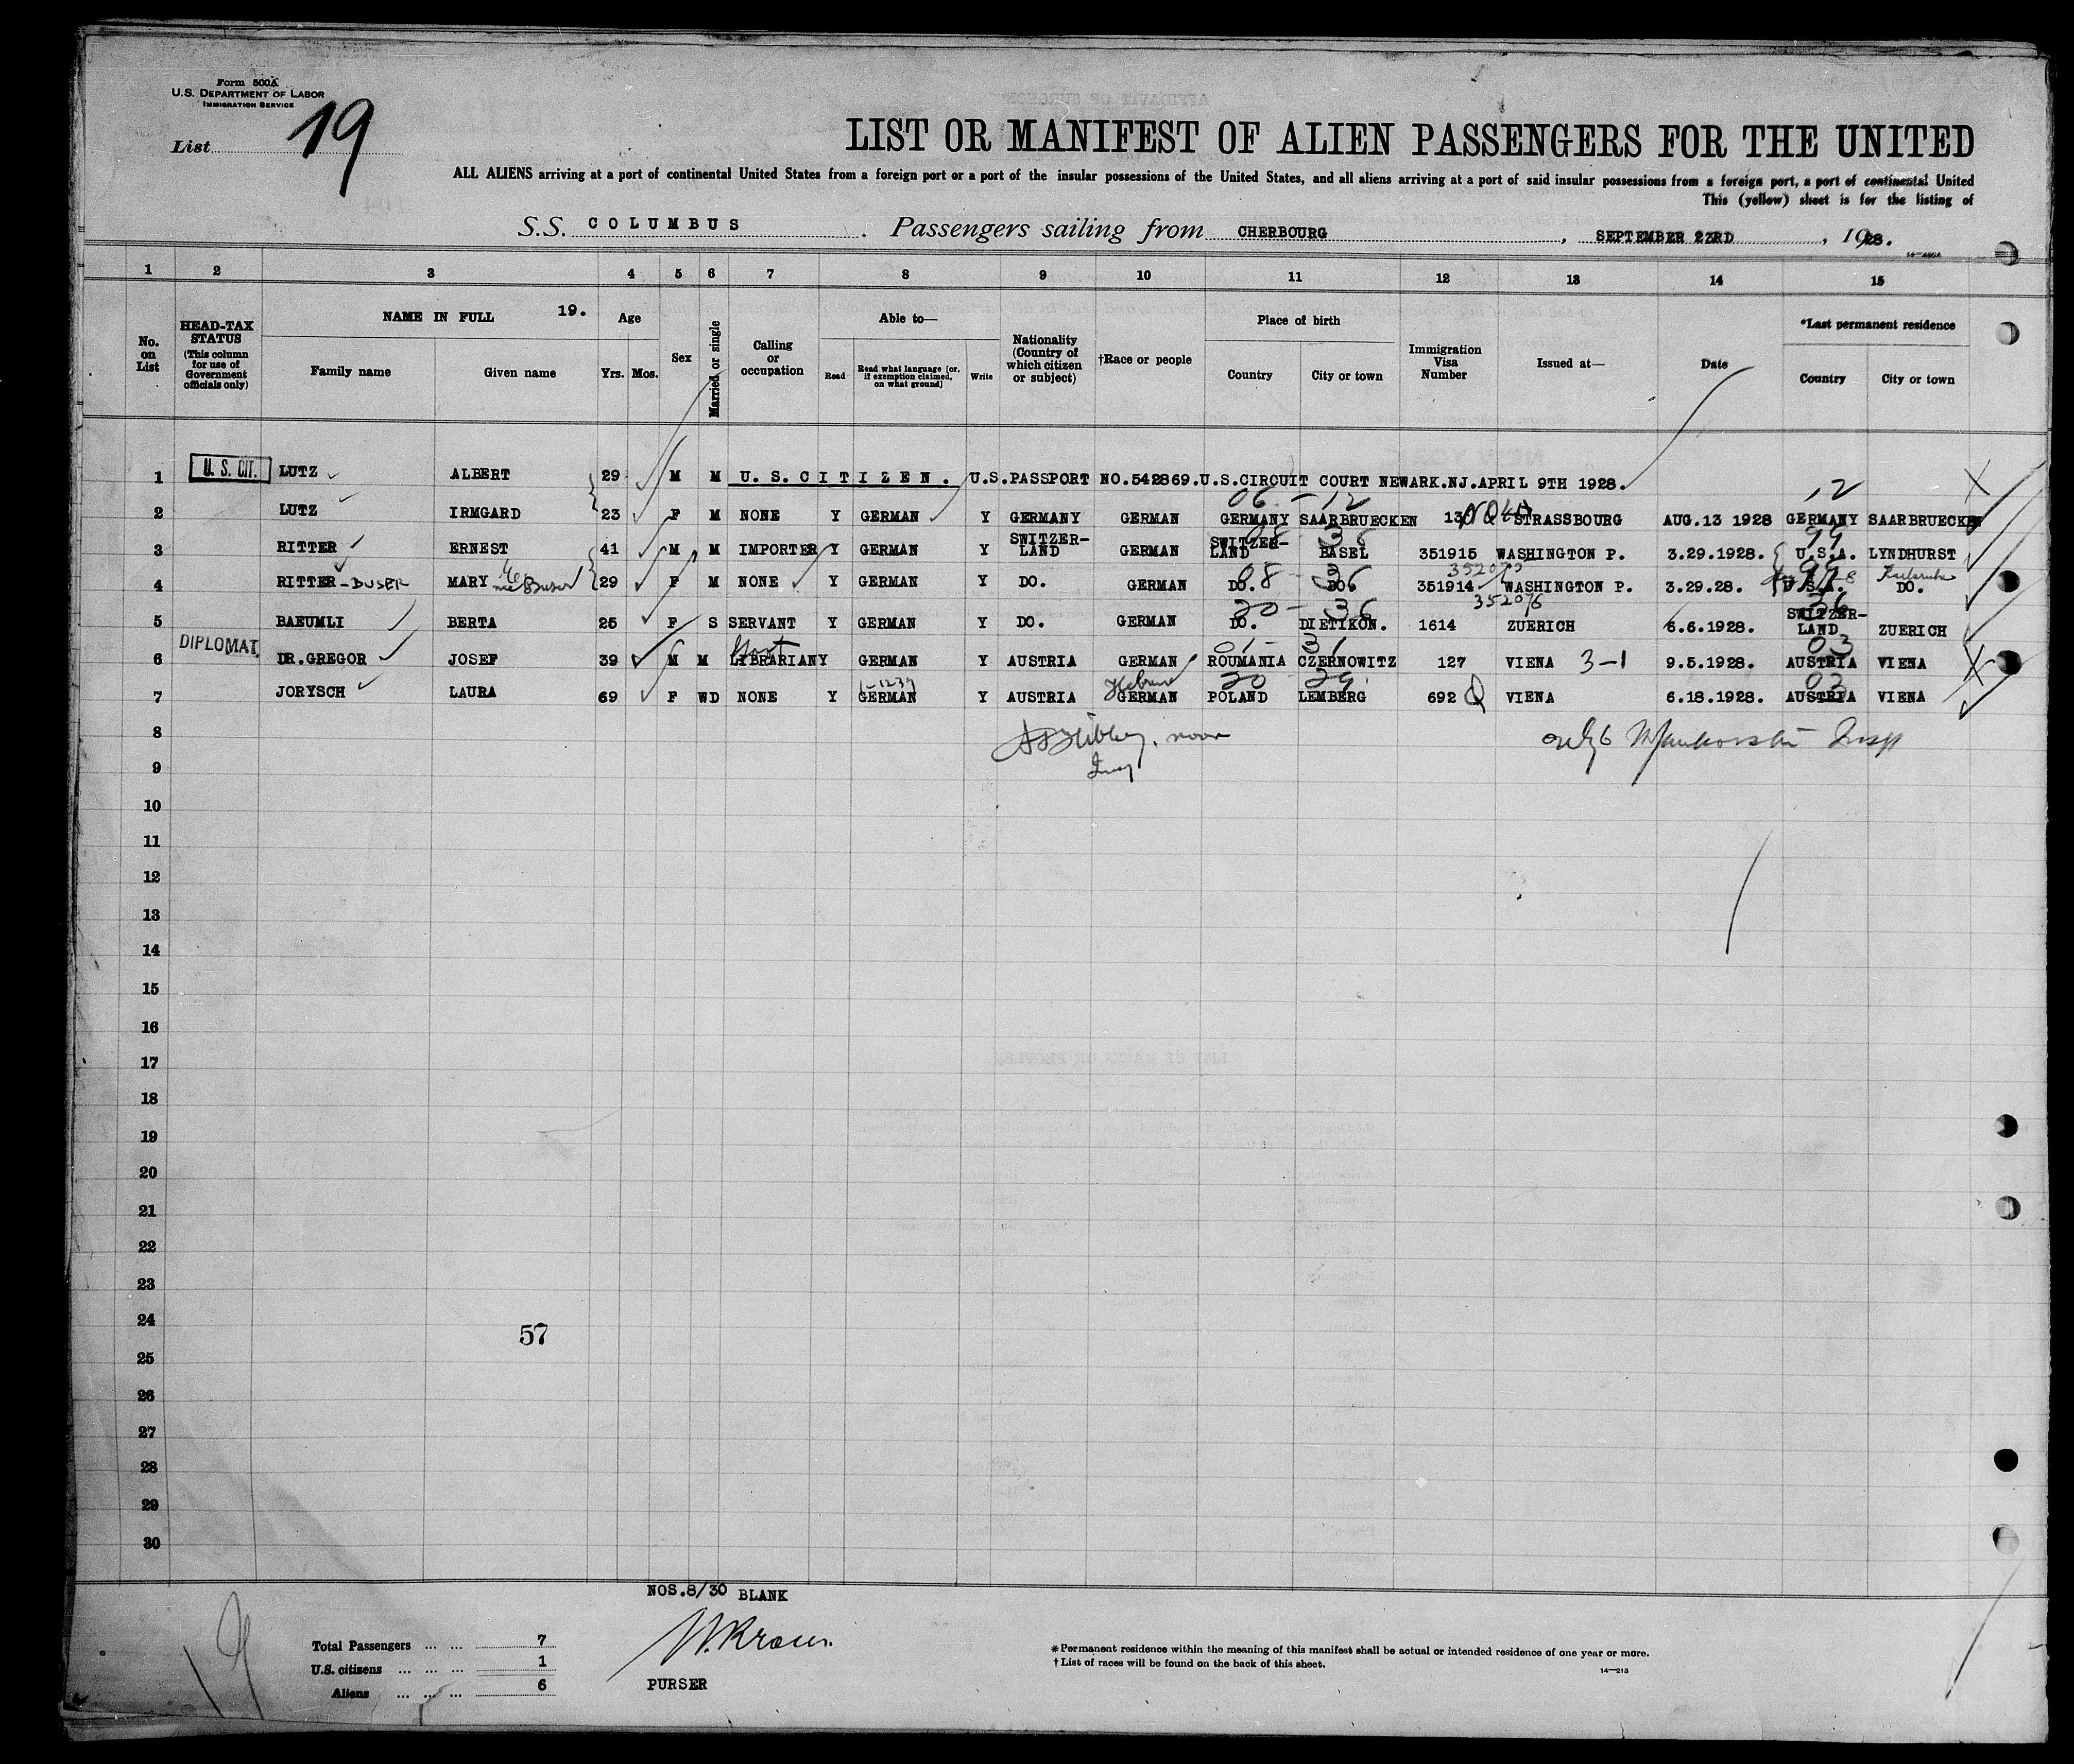 Form 500A
U.S. DEPARTMENT OF LABOR
IMMIGRATION SERVICE
List 19
LIST OR MANIFEST OF ALIEN PASSENGERS FOR THE UNITED
ALL ALIENS arriving at a port of continental United States from a foreign port or a port of the insular possessions of the United States, and all aliens arriving at a port of said insular possessions from a foreign port, a port of continental United
This (yellow) sheet is for the listing of
S.S. COLUMBUS . Passengers sailing from CHERBOURG , SEPTEMBER 23RD , 1928.
1 2 3 4 5 6 7 8 9 10 11 12 13 14 15
No. on List
HEAD-TAX STATUS (This column for use of Government officials only)
NAME IN FULL 19.
Family name Given name
Age Yrs. Mos.
Sex
Married or single
Calling or occupation
Able to—
Read Read what language [or, if exemption claimed, on what ground] Write
Nationality (Country of which citizen or subject)
†Race or people
Place of birth
Country City or town
Immigration Visa Number
Issued at—
Date
*Last permanent residence
Country City or town
1 U. S. CIT. LUTZ ALBERT 29 M M U. S. CITIZEN. U.S.PASSPORT NO.542869.U.S.CIRCUIT COURT NEWARK.NJ.APRIL 9TH 1928.
06 - 12 12
2 LUTZ IRMGARD 23 F M NONE Y GERMAN Y GERMANY GERMAN GERMANY SAARBRUECKEN STRASSBOURG AUG.13 1928 GERMANY SAARBRUECKEN
3 RITTER ERNEST 41 M M IMPORTER Y GERMAN Y SWITZER-LAND GERMAN SWITZER-LAND BASEL 351915 WASHINGTON P. 3.29.1928. U.S.A. LYNDHURST
4 RITTER-BUSER MARY née Buser 29 F M NONE Y GERMAN Y DO. GERMAN DO. DO. 351914 352076 WASHINGTON P. 3.29.28. U.S.A. DO.
5 BAEUMLI BERTA 25 F S SERVANT Y GERMAN Y DO. GERMAN DO. DIETIKON. 1614 ZUERICH 6.6.1928. SWITZER-LAND ZUERICH
6 DIPLOMAT DR.GREGOR JOSEF 39 M M Govt LIBRARIAN Y GERMAN Y AUSTRIA GERMAN ROUMANIA CZERNOWITZ 127 VIENA 3-1 9.5.1928. AUSTRIA VIENA
7 JORYSCH LAURA 69 F WD NONE Y GERMAN Y AUSTRIA Hebrew GERMAN POLAND LEMBERG 692 VIENA 6.18.1928. AUSTRIA VIENA
8
9
10
11
12
13
14
15
16
17
18
19
20
21
22
23
24
57
25
26
27
28
29
30
NOS.8/30 BLANK
Total Passengers ... ... 7
U.S. citizens ... ... ... 1
Aliens ... ... ... 6
PURSER
*Permanent residence within the meaning of this manifest shall be actual or intended residence of one year or more.
†List of races will be found on the back of this sheet.
14—213
19